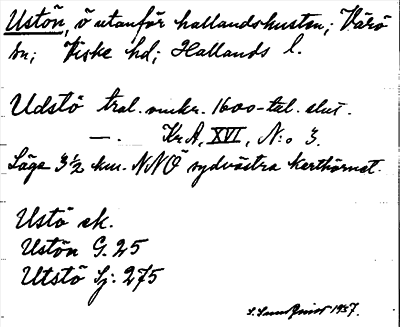 Ustön, ö utanför hallandskusten; Värö
sn; Viske hd; Hallands l.
Udstö tral. omkr. 1600-tal. slut.
—. Kr.A, XVI, N:o 3.
Läge 3½ km. NNÖ sydvästra karthörnet.
Ustö ek.
Ustön G. 25
Utstö Sj: 275
1957.